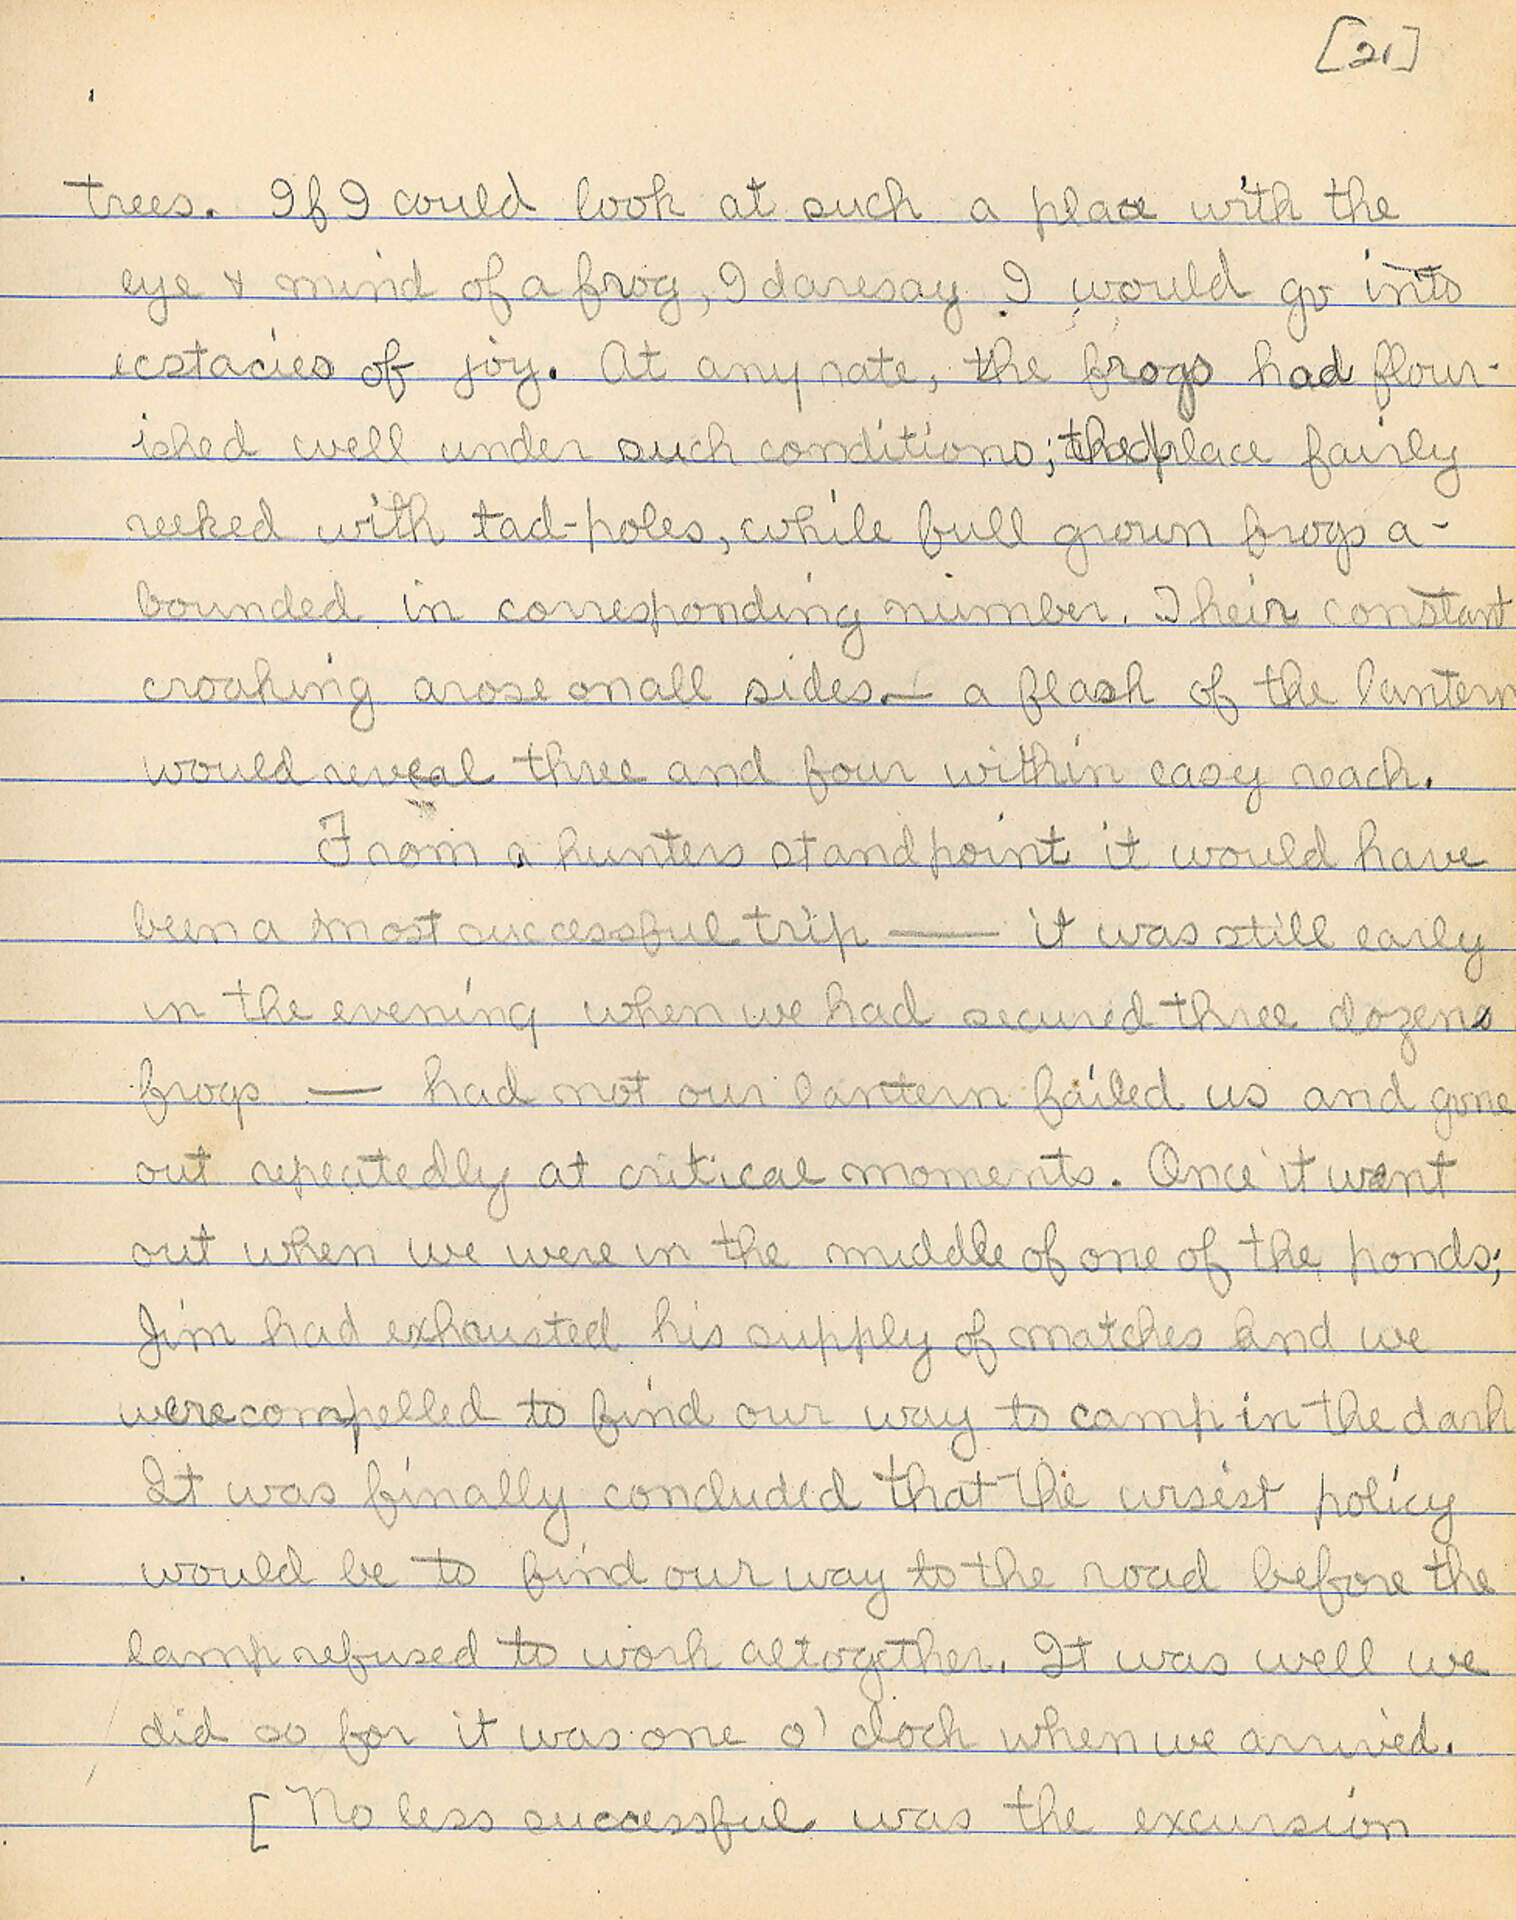 [21]
trees. If I could look at such a place with the
eye & mind of a frog, I daresay I would go into
ecstacies of joy. At any rate, the frogs had flour-
ished well under such conditions; the place fairly
reeked with tad-poles, while full grown frogs a-
bounded in corresponding number. Their constant
croaking arose on all sides. — a flash of the lantern
would reveal three and four within easy reach.
From a hunters standpoint it would have
been a most successful trip — it was still early
in the evening when we had secured three dozens
frogs — had not our lantern failed us and gone
out repeatedly at critical moments. Once it went
out when we were in the middle of one of the ponds;
Jim had exhausted his supply of matches and we
were compelled to find our way to camp in the dark
It was finally concluded that the wisest policy
would be to find our way to the road before the
lamp refused to work altogether. It was well we
did so for it was one o'clock when we arrived.
[ No less successful was the excursion